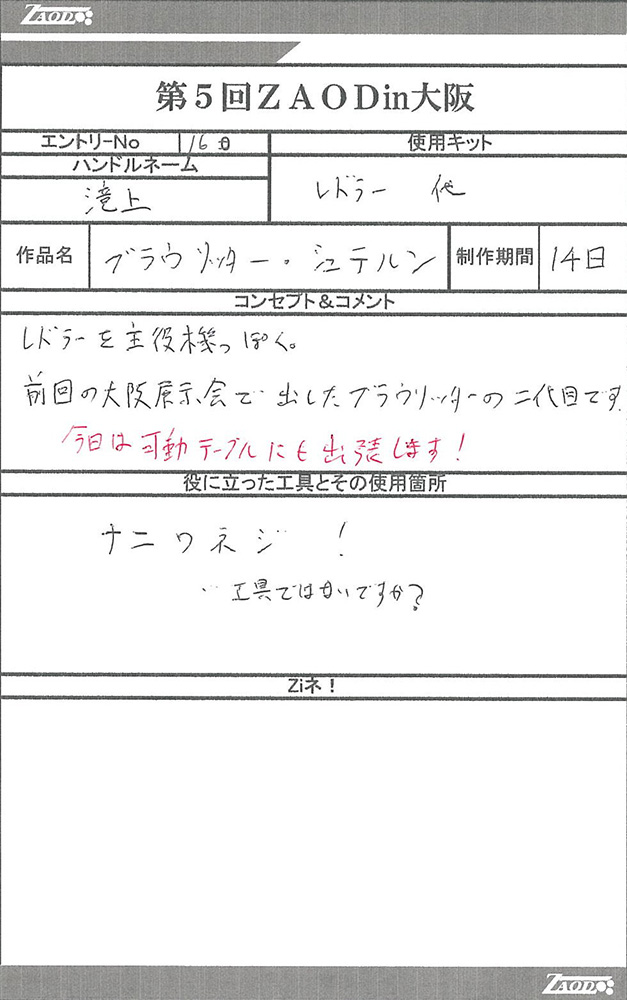 ZAOD
第5回ZAODin大阪
エントリーNo 160
使用キット
ハンドルネーム
滝上
レドラー 他
作品名 ブラウリッター・シュテルン 制作期間 14日
コンセプト&コメント
レドラーを主役機っぽく。
前回の大阪展示会で出したブラウリッターの二代目です
今日は可動テーブルにも出張します!
役に立った工具とその使用箇所
ナニワネジ !
…工具ではないですか?
Ziネ!
ZAOD